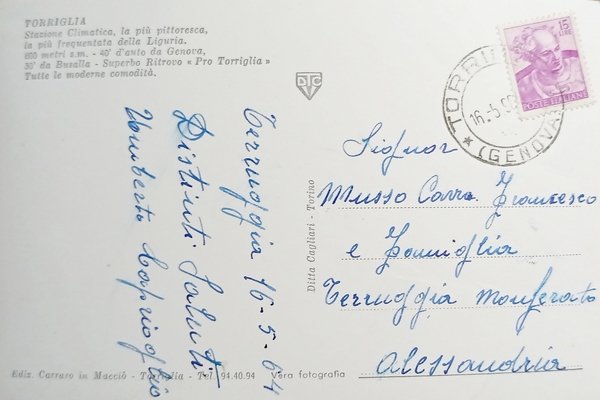 TORRIGLIA
Stazione Climatica, la più pittoresca,
la più frequentata della Liguria.
600 metri s.m. - 40' d'auto da Genova,
30' da Busalla - Superbo Ritrovo « Pro Torriglia »
Tutte le moderne comodità.
15
LIRE
POSTE ITALIANE
(GENOVA)
Terruggia 16-5-64
Distinti Saluti
Umberto Caprioglio
Ditta Cagliari - Torino
Signor
Musso Carra Francesco
e Famiglia
Terruggia Monferato
Alessandria
Ediz. Carraro in Macciò - Torriglia - Tel. 94.40.94
Vera fotografia